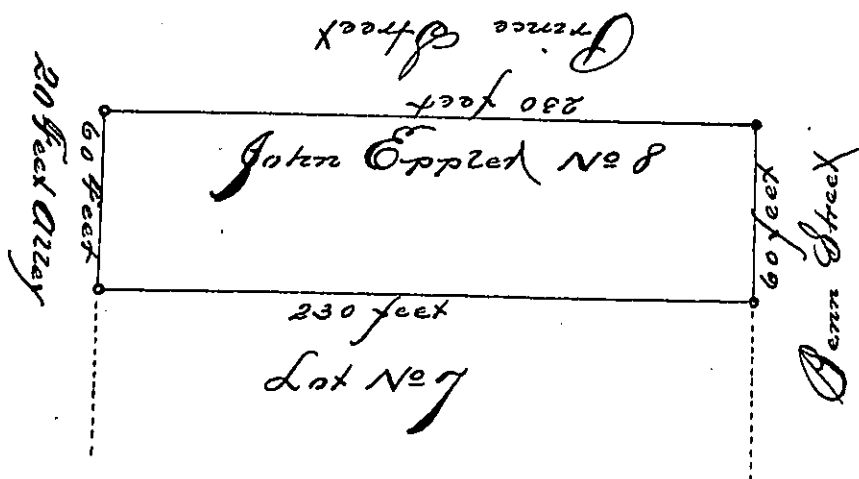 Prince Street
230 feet
20 Feet Alley
60 feet
John Eppled No 8
60 feet
Penn Street
230 feet
Lot No 7